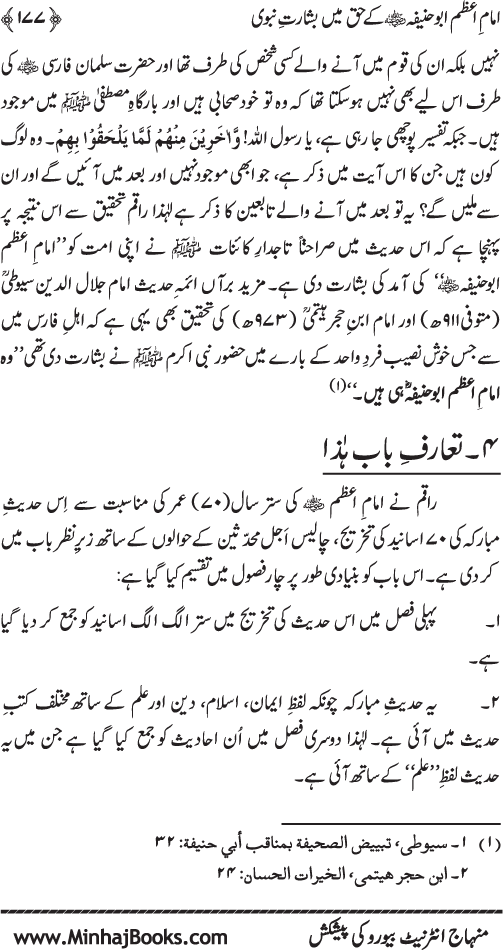 امامِ اعظم ابو حنیفہ ﷺ کے حق میں بشارتِ نبوی ﴿ ۱۷۷ ﴾
نہیں بلکہ ان کی قوم میں آنے والے کسی شخص کی طرف تھا اور حضرت سلمان فارسی کی
طرف اس لیے بھی نہیں ہوسکتا تھا کہ وہ تو خود صحابی ہیں اور بارگاہِ مصطفیٰ ﷺ میں موجود
ہیں۔ جبکہ تفسیر پوچھی جا رہی ہے، یا رسول اللہ! وَّاٰخَرِيْنَ مِنْهُمْ لَمَّا يَلْحَقُوْا بِهِمْ۔ وہ لوگ
کون ہیں جن کا اس آیت میں ذکر ہے، جو ابھی موجود نہیں اور بعد میں آئیں گے اور ان
سے ملیں گے؟ یہ تو بعد میں آنے والے تابعین کا ذکر ہے لہٰذا راقم تحقیق سے اس نتیجہ پر
پہنچا ہے کہ اس حدیث میں صراحتاً تاجدارِ کائنات ﷺ نے اپنی امت کو ’’امامِ اعظم
ابوحنیفہ‘‘ کی آمد کی بشارت دی ہے۔ مزید برآں ائمہِ حدیث امام جلال الدین سیوطیؒ
(متوفی ۹۱۱ھ) اور امام ابنِ حجر ہیتمیؒ (۹۷۳ھ) کی تحقیق بھی یہی ہے کہ اہلِ فارس میں
سے جس خوش نصیب فردِ واحد کے بارے میں حضور نبی اکرم ﷺ نے بشارت دی تھی ’’وہ
امامِ اعظم ابوحنیفہؒ ہی ہیں۔‘‘(۱)
۴۔ تعارفِ بابِ ہٰذا
راقم نے امامِ اعظم کی ستر سال (۷۰) عمر کی مناسبت سے اِس حدیثِ
مبارکہ کی ۷۰ اسانید کی تخریج، چالیس اَجل محدّثین کے حوالوں کے ساتھ زیرِ نظر باب میں
کر دی ہے۔ اس باب کو بنیادی طور پر چار فصول میں تقسیم کیا گیا ہے:
۱۔ پہلی فصل میں اس حدیث کی تخریج میں ستر الگ الگ اسانید کو جمع کر دیا گیا
ہے۔
۲۔ یہ حدیثِ مبارکہ چونکہ لفظِ ایمان، اسلام، دین اور علم کے ساتھ مختلف کتبِ
حدیث میں آئی ہے۔ لہٰذا دوسری فصل میں اُن احادیث کو جمع کیا گیا ہے جن میں یہ
حدیث لفظِ ’’علم‘‘ کے ساتھ آئی ہے۔
(۱) ۱۔ سیوطی، تبییض الصحیفة بمناقب أبي حنیفة: ۳۲
۲۔ ابن حجر هیتمی، الخیرات الحسان: ۲۴
منہاج انٹرنیٹ بیورو کی پیشکش www.MinhajBooks.com